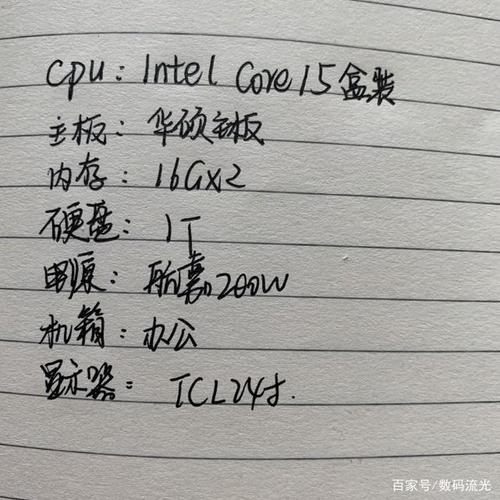 cpu：Intel Core I5盒装
主板：华硕主板
内存：16G×2
硬盘：1T
电源：航嘉200W
机箱：办公
显示器：TCL24寸.
百家号/数码流光